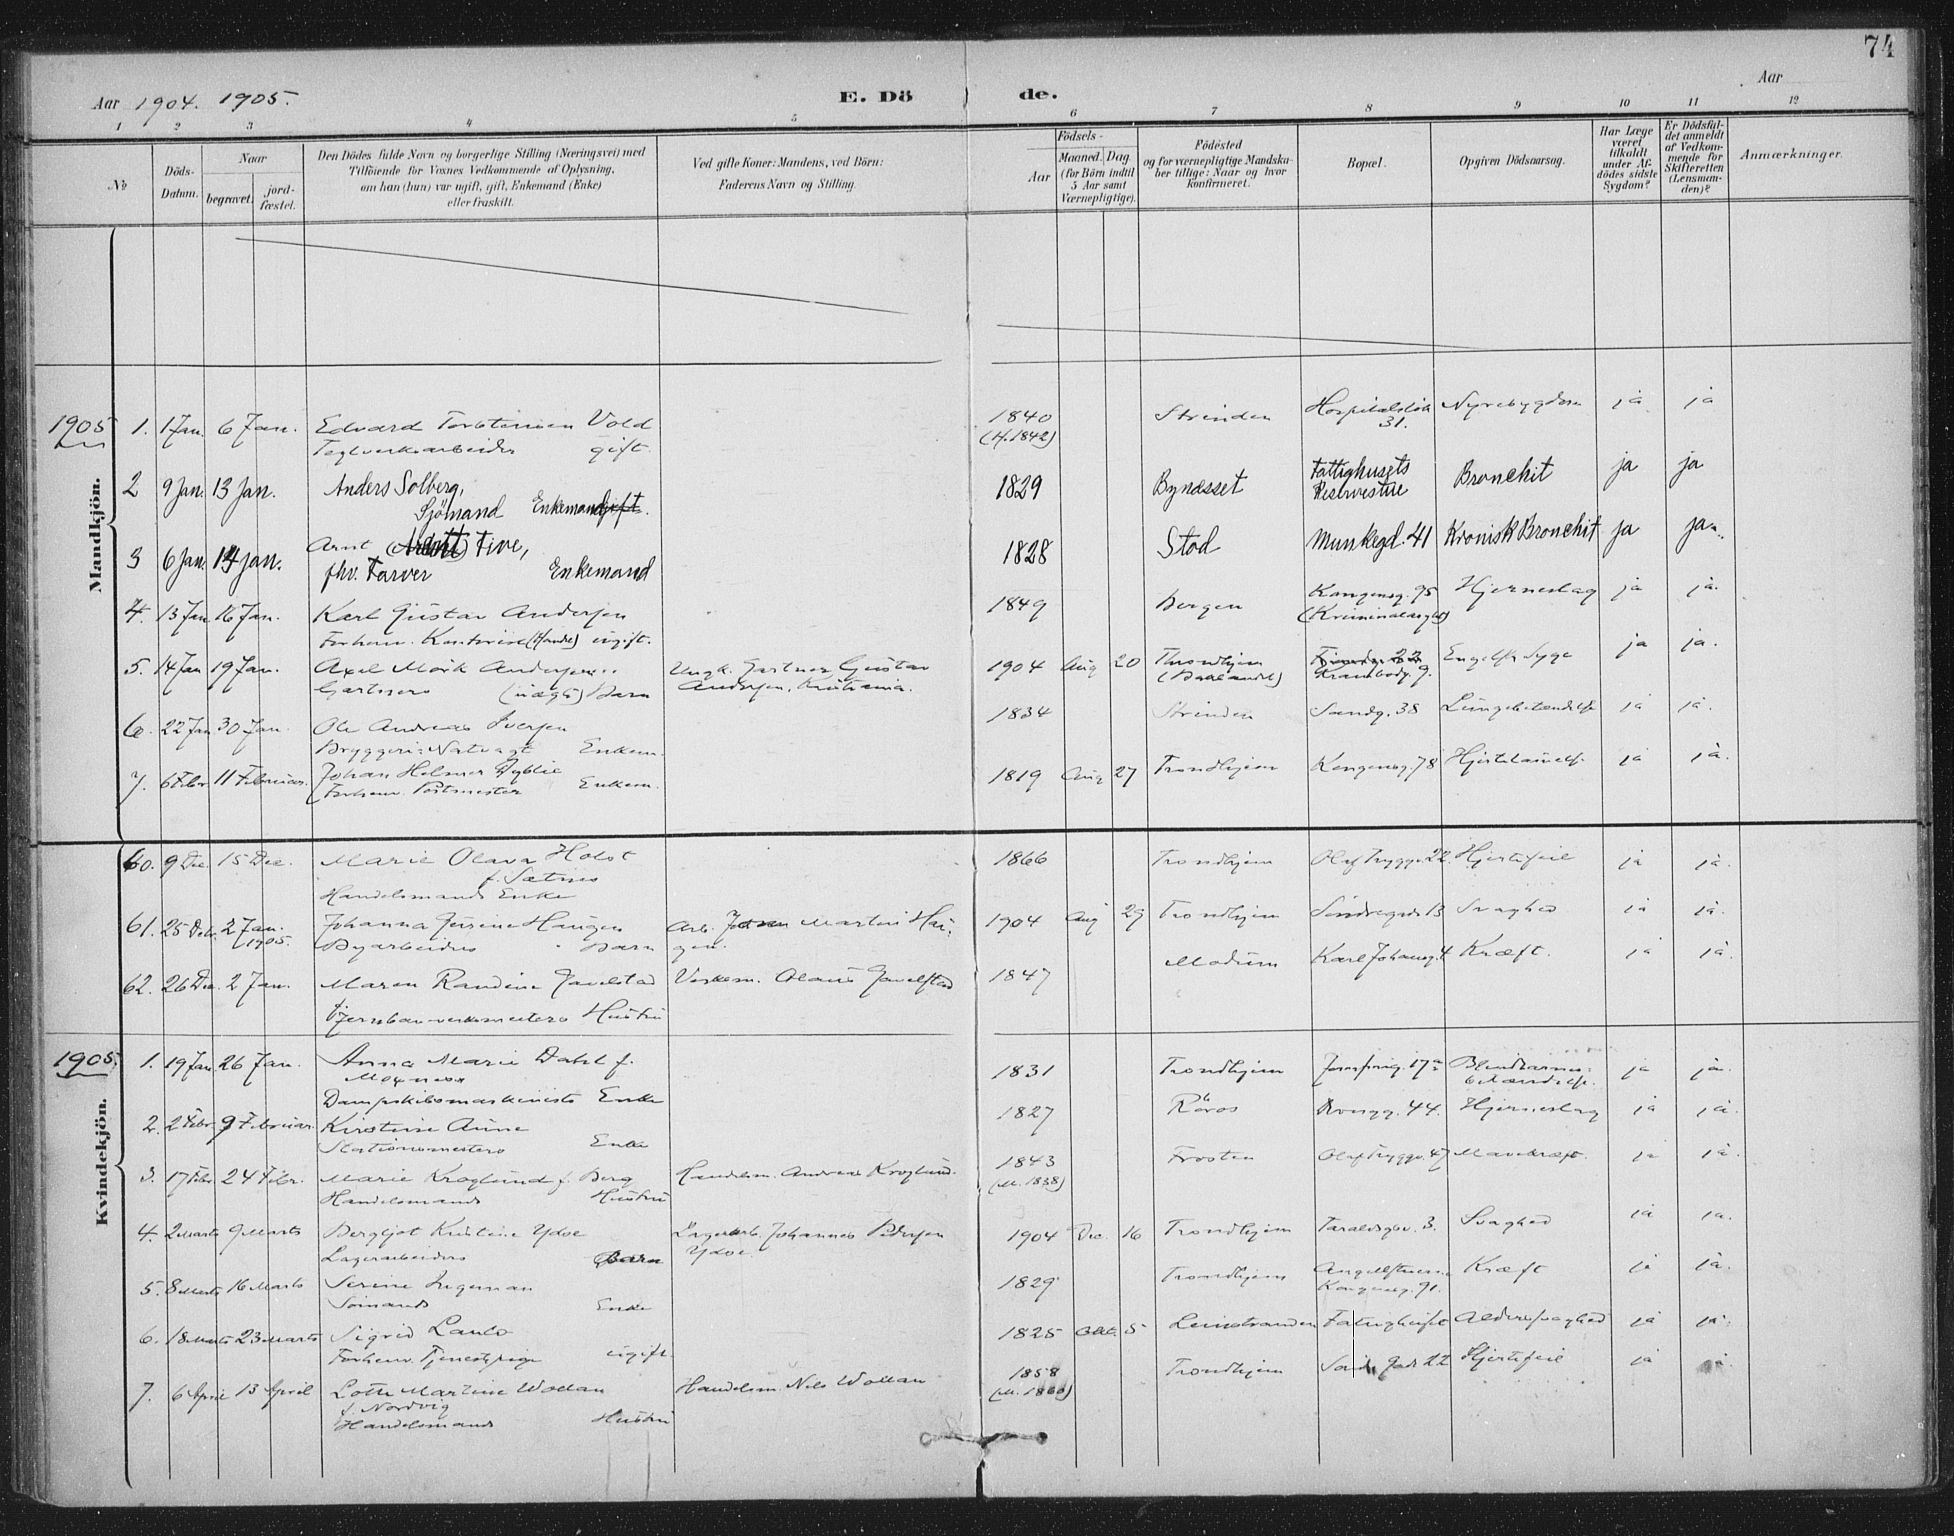 74
Aar 1904. 1905.
E. Dö de.
Aar
1 2 3 4 5 6 7 8 9 10 11 12
No
Döds-Datum.
Naar
begravet.
jord-fæstet.
Den Dödes fulde Navn og borgerlige Stilling (Næringsvei) med
Tilföiende for Voxnes Vedkommende af Oplysning,
om han (hun) var ugift, gift, Enkemand (Enke)
eller fraskilt.
Ved gifte Koner: Mandens, ved Börn:
Faderens Navn og Stilling.
Födsels-
Aar
Maaned. Dag.
(for Börn indtil
5 Aar samt
Værnepligtige).
Födested
og for værnepligtige Mandskaber tillige: Naar og hvor
konfirmeret.
Bopæl.
Opgiven Dödsaarsag.
Har Læge
været
tilkaldt
under Afdödes sidste
Sygdom?
Er Dödsfaldet anmeldt
af Vedkommende for
Skifteretten
(Lensmanden)?
Anmærkninger.
Mandkjön.
1905 1. 1 Jan. 6 Jan. Edvard Torstensen Vold 1840 Strinden Nyresygdom ja ja
Teglverksarbeider gift. 31.
2 9 Jan. 13 Jan. Anders Solberg, 1829 Bynæsset Fattighusets Bronchit ja ja
Sjömand Enkemand gift.
3 6 Jan. 14 Jan. Arnt Five, 1828 Stod Munkegd. 41 Kronisk Bronchit ja ja
fhv. Farver Enkemand
4. 13 Jan 16 Jan. Karl Gustav Andersen 1849 Bergen Kongensg. 95 Hjerneslag ja ja.
Forhenv. ugift.
5. 14 Jan 19 Jan. Axel Mörk Andersen 1904 Aug 20 Throndhjem Engelsk Syge ja ja.
Gartners (uægte) Barn Ungk. Gartner Gustav
Andersen, Kristiania. (Baklandet)
6. 22 Jan 30 Jan. Ole Andreas Iversen 1834 Strinden Sandg. 38 Lungebetændelse ja ja.
Bryggeri-Natvagt Enkem.
7. 6 Febr 11 Februar. Johan Helmer 1819 Aug 27 Trondhjem Kongensg. 78 Hjertelammelse ja ja.
Forhenv. Postmester Enkem.
60. 9 Dec 15 Dec. Marie Olava Holst 1866 Trondhjem Olaf Tryggv. 22 Hjertefeil ja ja.
f. Sætnes
Handelsmands Enke
61. 25 Deb. 2 Jan. 1905. Johanna Jörgine Haugen Arb. Johan Martin Haugen. 1904 Aug 29 Trondhjem Söndregade 13 Svaghed ja ja.
Byarbeiders Barn
62. 26 Dec. 2 Jan. Maren Randine Gavelstad Verkm. Olaus Gavelstad 1847 Modum Karl Johansg. 4 Kræft. ja ja.
Jernbaneverksmesters Hustru
Kvindekjön.
1905. 1. 19 Jan. 26 Jan. Anna Marie Dahl f. 1831 Trondhjem Blindtarmsbetændelse. ja ja.
Moxness
Dampskibsmaskinists Enke
2. 2 Febr. 9 Februar. Kirstine Aune 1827 Röros 44. Hjerneslag ja ja.
Stationsmesters Enke
3. 17 Febr 24 Febr. Marie Kroglund f. Berg Handelsm. Andreas Kroglund. 1843 Frosten Olaf Tryggv. 47 Mavekræft ja ja.
Handelsmands Hustru (M. 1838)
4. 2 Marts 9 Marts Bergljot Kristine Ydse Lagerarb. Johannes Pedersen 1904 Dec. 16 Trondhjem 3. Svaghed ja ja.
Lagerarbeiders Barn Ydse.
5. 8 Marts 16 Marts Serine 1829 Trondhjem Kræft ja ja.
Sömands Enke Kongensg. 91.
6. 18 Marts 23 Marts Sigrid Laulo 1825 Okt. 5 Leinstranden Fattighuset Alderssvaghed ja ja.
Forhenv. Tjenestepige ugift.
7. 6 April 13 April Lotte Martine Wollan Handelsm. Nils Wollan 1858 Trondhjem 22 Hjertefeil ja ja.
f. Nordvig
Handelsmands Hustru